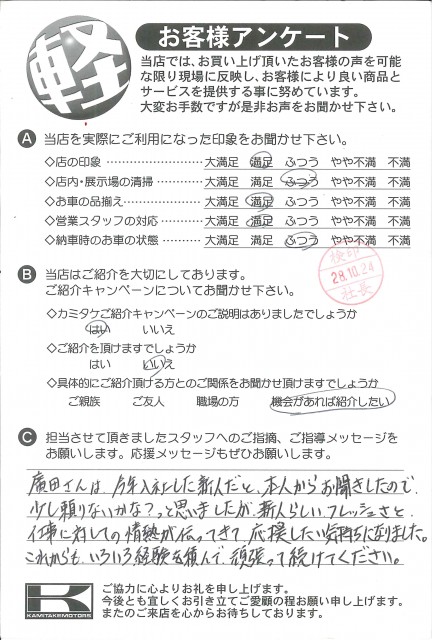 軽
お客様アンケート
当店では、お買い上げ頂いたお客様の声を可能
な限り現場に反映し、お客様により良い商品と
サービスを提供する事に努めています。
大変お手数ですが是非お声をお聞かせ下さい。
A 当店を実際にご利用になった印象をお聞かせ下さい。
◇店の印象 …………………… 大満足 満足 ふつう やや不満 不満
◇店内・展示場の清掃 ………… 大満足 満足 ふつう やや不満 不満
◇お車の品揃え ……………… 大満足 満足 ふつう やや不満 不満
◇営業スタッフの対応 ………… 大満足 満足 ふつう やや不満 不満
◇納車時のお車の状態 ………… 大満足 満足 ふつう やや不満 不満
検印
28.10.24
社長
B 当店はご紹介を大切にしております。
ご紹介キャンペーンについてお聞かせ下さい。
◇カミタケご紹介キャンペーンのご説明はありましたでしょうか
はい いいえ
◇ご紹介を頂けますでしょうか
はい いいえ
◇具体的にご紹介頂ける方とのご関係をお聞かせ頂けますでしょうか
ご親族 ご友人 職場の方 機会があれば紹介したい
C 担当させて頂きましたスタッフへのご指摘、ご指導メッセージを
お願いします。応援メッセージもぜひお願いします。
廣田さんは、今年入社した新人だと、本人からお聞きしたので、
少し頼りないかな?っと思いましたが、新人らしいフレッシュさと、
仕事に対しての情熱が伝ってきて、応援したい気持ちになりました。
これからも、いろいろ経験を積んで、頑張って続けてください。
K
KAMITAKEMOTORS
ご協力に心よりお礼を申し上げます。
今後とも宜しくお引き立てご愛顧の程お願い申し上げます。
またのご来店を心からお待ちしております。